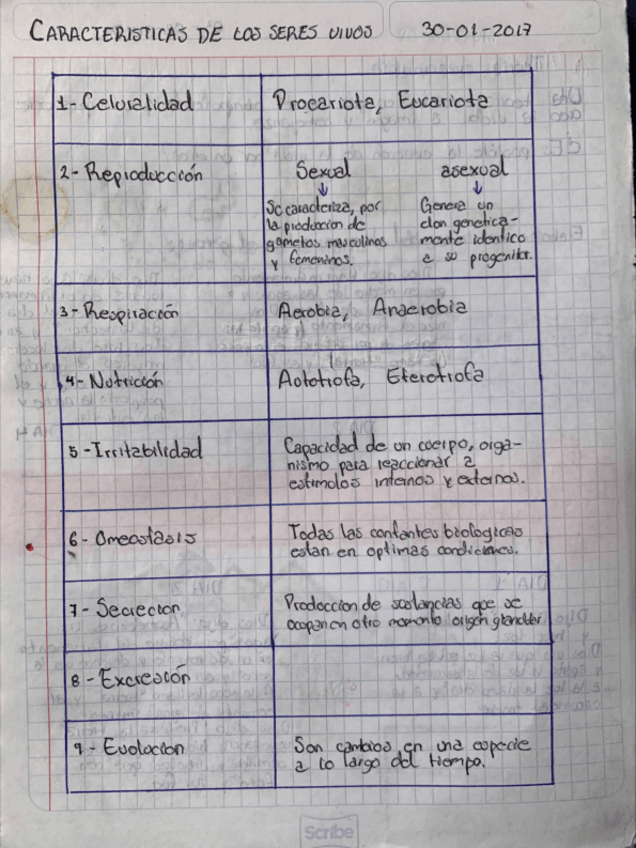 CARACTERISTICAS DE LOS SERES VIVOS 30-01-2017
1- Celuralidad
Procariota, Eucariota
2- Reproducción
Sexual asexual
Se caracteriza, por
la produccion de
gametos masculinos
y femeninos.
Genera un
clon genetica-
mente identico
a su progenitor.
3- Respiración
Aerobia, Anaerobia
4- Nutrición
Autotrofa, Eterotrofa
5- Irritabilidad
Capacidad de un cuerpo, orga-
nismo para reaccionar a
estimulos internos y externos.
6- Omeostasis
Todas las contantes biologicas
estan en optimas condiciones.
7- Secrecion
Produccion de sustancias que se
ocupan en otro momento origen glandular
8- Excresión
9- Evolucion
Son cambios en una especie
a lo largo del tiempo.
Scribe